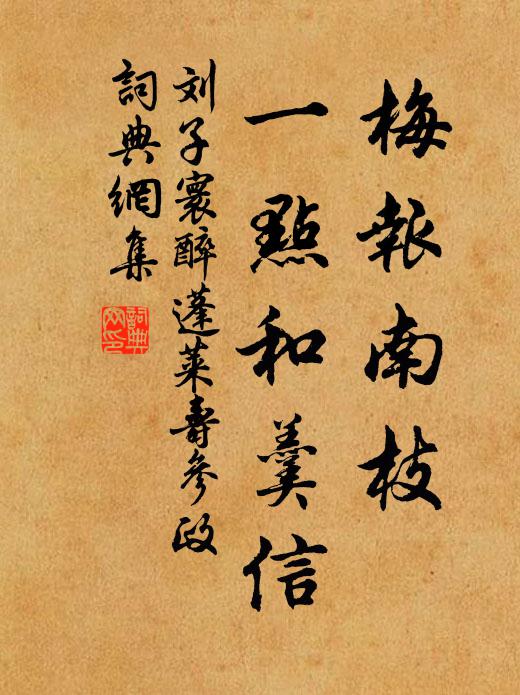 梅報南枝
一點和羹信
刘子寰醉蓬莱壽參政
詞典網集
詞典網印